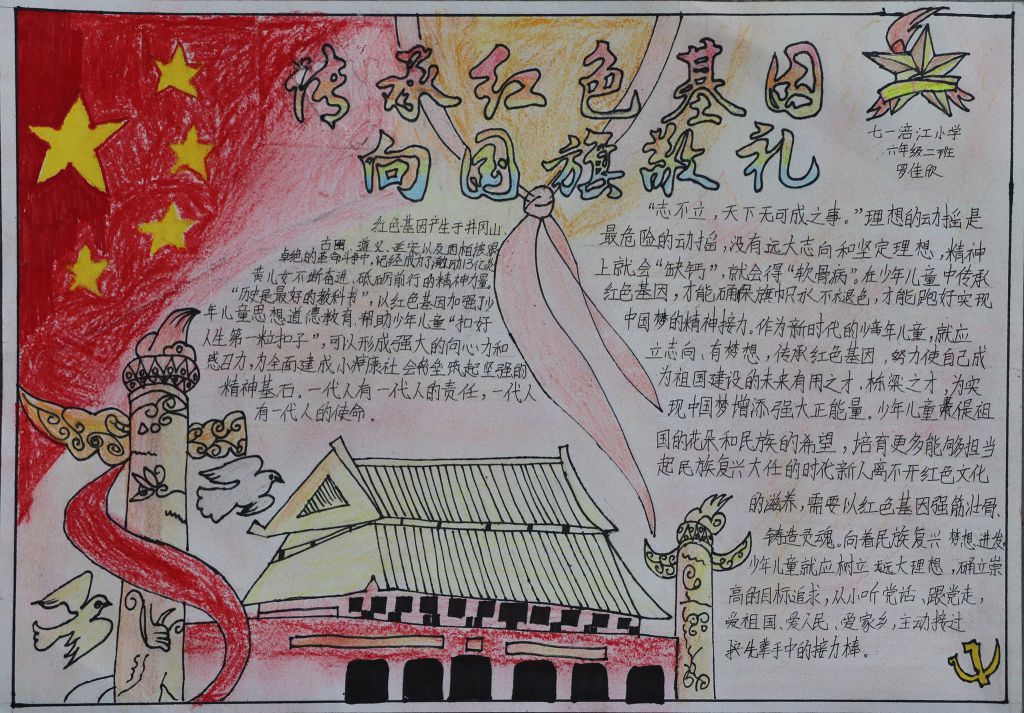 传承红色基因
向国旗敬礼
七一涪江小学
六年级二班
罗佳欣
红色基因产生于井冈山、
古田、遵义、延安以及西柏坡艰
卓绝的革命斗争中,已经成为了激励13亿炎
黄儿女不断奋进,砥砺前行的精神力量。
“历史是最好的教科书”,以红色基因加强少
年儿童思想道德教育,帮助少年儿童“扣好
人生第一粒扣子”,可以形成强大的向心力和
感召力,为全面建成小康社会构垒筑起坚强的
精神基石。一代人有一代人的责任,一代人
有一代人的使命。
“志不立,天下无可成之事。”理想的动摇是
最危险的动摇,没有远大志向和坚定理想,精神
上就会“缺钙”,就会得“软骨病”。在少年儿童中传承
红色基因,才能确保旗帜永不褪色,才能跑好实现
中国梦的精神接力。作为新时代的少年儿童,就应
立志向、有梦想,传承红色基因,努力使自己成
为祖国建设的未来有用之才、栋梁之才,为实
现中国梦增添强大正能量。少年儿童是祖
国的花朵和民族的希望,培育更多能够担当
起民族复兴大任的时代新人离不开红色文化
的滋养,需要以红色基因强筋壮骨、
铸造灵魂。向着民族复兴梦想进发,
少年儿童就应树立远大理想,确立崇
高的目标追求,从小听党话、跟党走,
爱祖国、爱人民、爱家乡,主动接过
先辈手中的接力棒。